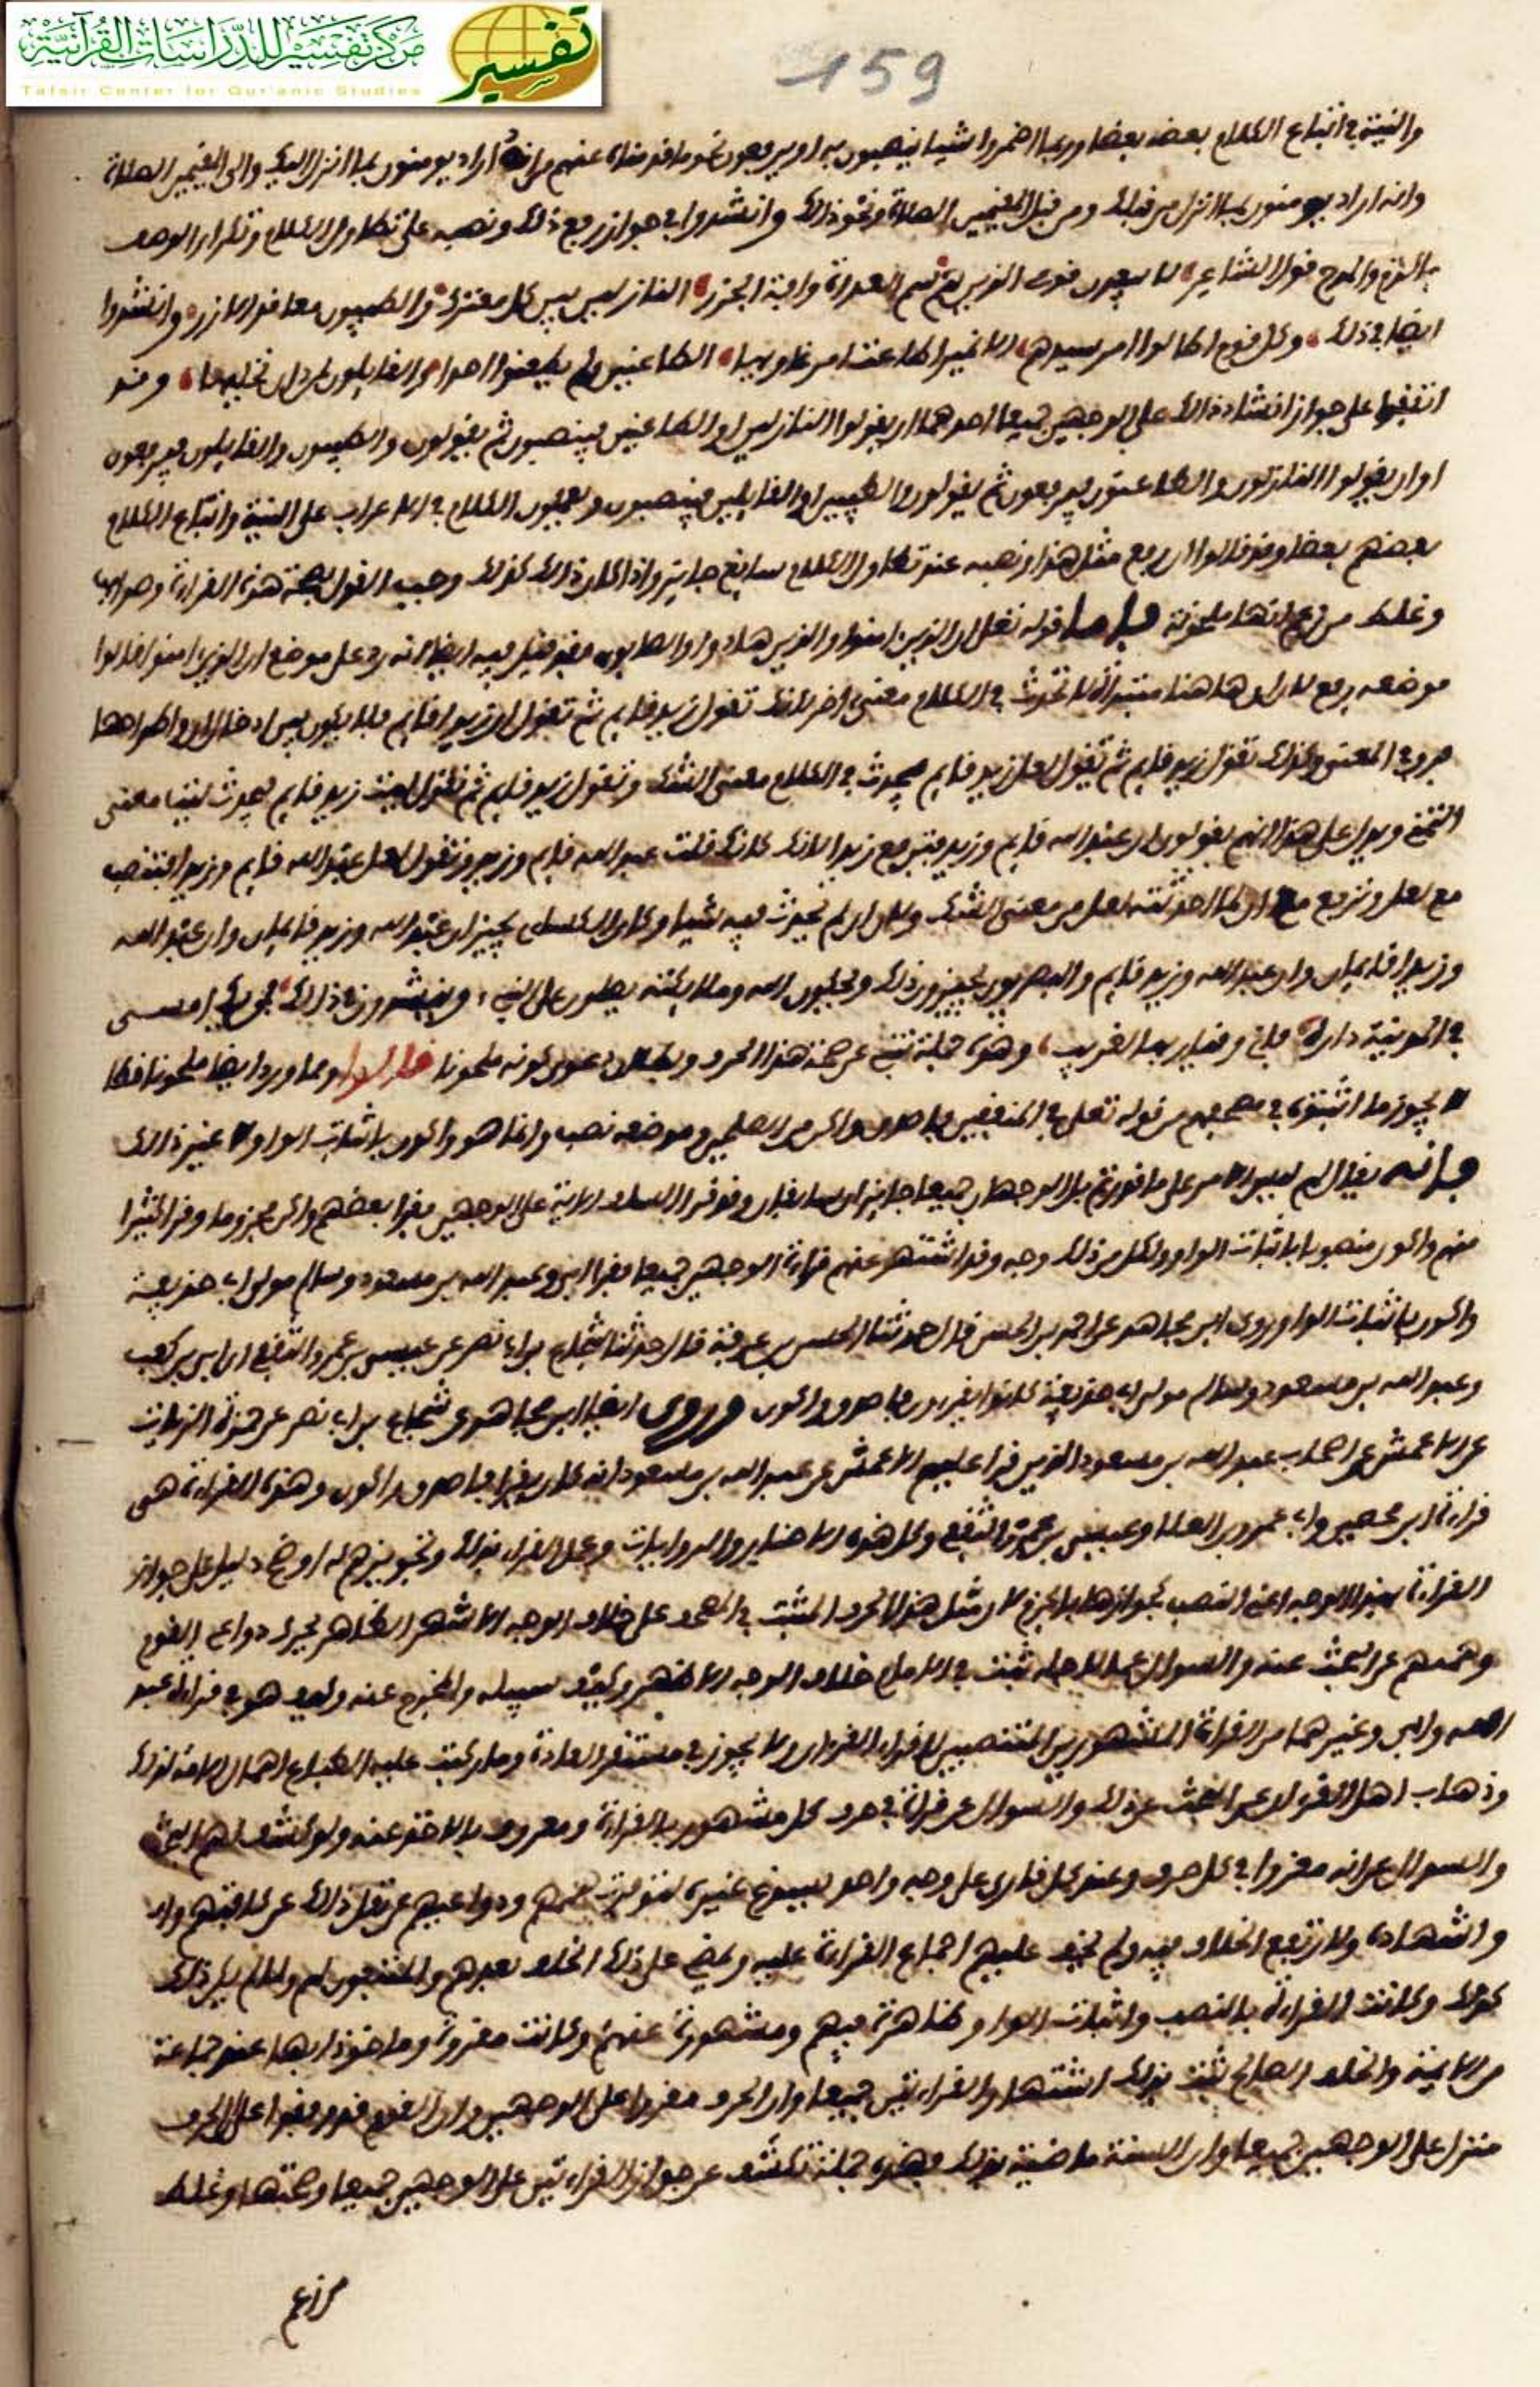 مركز تفسير للدراسات القرآنية
Tafsir Center for Qur'anic Studies
تفسير
159
والنية في اتباع الكلام بعضه بعضا وربما اضمروا شيا ينصبون به او يرفعون نحو ما قدمناه عنهم من انه اراد يومنون بما انزل اليك والى المقيمين الصلاة
وانه اراد يومنون بما انزل من قبلك ومن قبل المقيمين الصلاة ونحو ذلك وانشدوا في جواز رفع ذلك ونصبه على تطاول الكلام وتكرار الوصف
بالذم والمدح قول الشاعر لا يبعدن قومي الذين هم سم العداة وافة الجزر النازلين بكل معترك والطيبون معاقد الازر وانشدوا
ايضا في ذلك وكل قوم اطاعوا امر سيدهم الا نميرا اطاعت امر غاويها الظاعنين ولم يظعنوا احدا والقايلون لمن دار نخليها وقد
اتفقوا على جواز انشاد ذلك على الوجهين جميعا احدهما ان يقولوا النازلين او الظاعنين فينصبون ثم يقولون والطيبون والقايلون فيرفعون
او ان يقولوا النازلون والظاعنون فيرفعون ثم يقولون والطيبين او القايلين فينصبون ويحملون الكلام في الاعراب على النية واتباع الكلام
بعضهم بعضا وقد قالوا ان رفع مثل هذا ونصبه عند تطاول الكلام سايغ جايز واذا كان ذلك كذلك وجب القول بصحة هذه القراءة وصوابها
وغلط من زعم انها ملحونة فاما قوله تعلى ان الذين امنوا والذين هادوا والصابون فقد قيل فيه ايضا انه رد على موضع ان الذين امنوا قالوا
موضعه رفع لان ان هاهنا مبتداة لا تحدث في الكلام معنى اخر لانك تقول زيد قايم ثم تقول ان زيدا قايم فلا يكون بين ادخال ان واطراحها
فرق في المعنى وكذلك تقول زيد قايم ثم تقول لعل زيد قايم فيحدث في الكلام معنى الشك وتقول زيد قايم ثم تقول ليت زيد قايم فيحدث ليت معنى
التمني ويدل على هذا انهم يقولون ان عبد الله قايم وزيد فترفع زيدا لانك كانك قلت عبد الله قايم وزيد وتقول لعل عبد الله قايم وزيدا فتنصب
مع لعل وترفع مع ان لما احدثته لعل من معنى الشك ولان ان لم تحدث فيه شيا وكان الكساي يجيز ان عبد الله وزيد قايمان وان عبد الله
وزيدا قايمان وان عبد الله وزيد قايم والبصريون يجيزون ذلك ويحكون الله وملايكته يصلون على النبي وينشدون في ذلك فمن يك امسى
في المدينة داره فاني وقيار بها لغريب وهذه جملة تنبي عن صحة هذا الحرف وبطلان دعوى كونه ملحونا قالوا ومما ورد ايضا ملحونا خطا
لا يجوز ما اثبتوه في مصحفهم من قوله تعلى في المنفقين فاصدق واكن من الصلحين وموضعه نصب وانما هو واكون باثبات الواو لا غير ذلك
فانه يقال لهم ليس الامر على ما قدرتم بل الوجهان جميعا جايزان سايغان وقد قرا السلف الاية على الوجهين فقرا بعضهم واكن مجزوما وقرا كثير
منهم واكون منصوبا باثبات الواو ولكل من ذلك وجه وقد اشتهر عنهم قراءة الوجهين جميعا فقرا ابي وعبد الله بن مسعود وسالم مولى ابي حذيفة
واكون باثبات الواو وروى ابن مجاهد عن احمد بن الحسن قال حدثنا الحسن بن عرفة قال حدثنا شجاع بن ابي نصر عن عيسى بن عمر والثقفي ان ابي بن كعب
وعبد الله بن مسعود وسالم مولى ابي حذيفة كانوا يقرءون فاصدق واكون وروى ايضا ابن مجاهد عن شجاع بن ابي نصر عن حمزة الزيات
عن الاعمش عن اصحاب عبد الله بن مسعود الذين قرا عليهم الاعمش عن عبد الله بن مسعود انه كان يقرا فاصدق واكون وهذه القراءة هي
قراءة ابن محيصن وابي عمرو بن العلا وعيسى بن عمر والثقفي وكل هذه الاخبار والروايات وعمل القراء بذلك وتجويزهم له اوضح دليل على جواز
القراءة بهذا الوجه اعني النصب كجوازها بالجزم لان مثل هذا الحرف المثبت في المصحف على خلاف الوجه الاشهر الظاهر يحرك دواعي القوم
وهممهم عن البحث عنه والسوال عما لاجله ثبت في الامام خلاف الوجه الاظهر وكيف سبيله والمخرج عنه وكيف هو في قراءة عبد
الله وابي وغيرهما من القراءة المشهورين المنتصبين لاقراء القران ولا يجوز في مستقر العادة وما ركبت عليه الطباع اهمال الامة لذلك
وذهاب اهل القران عن البحث عن ذلك والسوال عن قراءة في حرف كل مشهور بالقراءة ومعروف بالاخذ عنه ولو كشف لهم البحث
والسوال عن انه مقروا في كل حرف وعند كل قارى على وجه واحد ليسوغ غيره لتوفرت هممهم ودواعيهم عن نقل ذلك عن كافتهم وان
والشهادة ولارتفع الخلاف فيه ولم يخف عليهم اجماع القراءة عليه ولمضى على ذلك الخلف بعدهم والمتبعون لهم ولما لم يكن ذلك
كذلك وكانت القراءة بالنصب واثبات الواو ظاهرة فيهم ومشهورة عنهم وكانت مقروة وماخوذا بها عند جماعة
من الايمة والخلف الصالح ثبت بذلك اشتهار القراءتين جميعا وان الحرف مقروا على الوجهين وان القوم قد وقفوا على ان الحرف
منزل على الوجهين جميعا وان السنة ماضية بذلك فهذه جملة تكشف عن جواز القراءتين على الوجهين جميعا وصحتها وغلط
من زعم